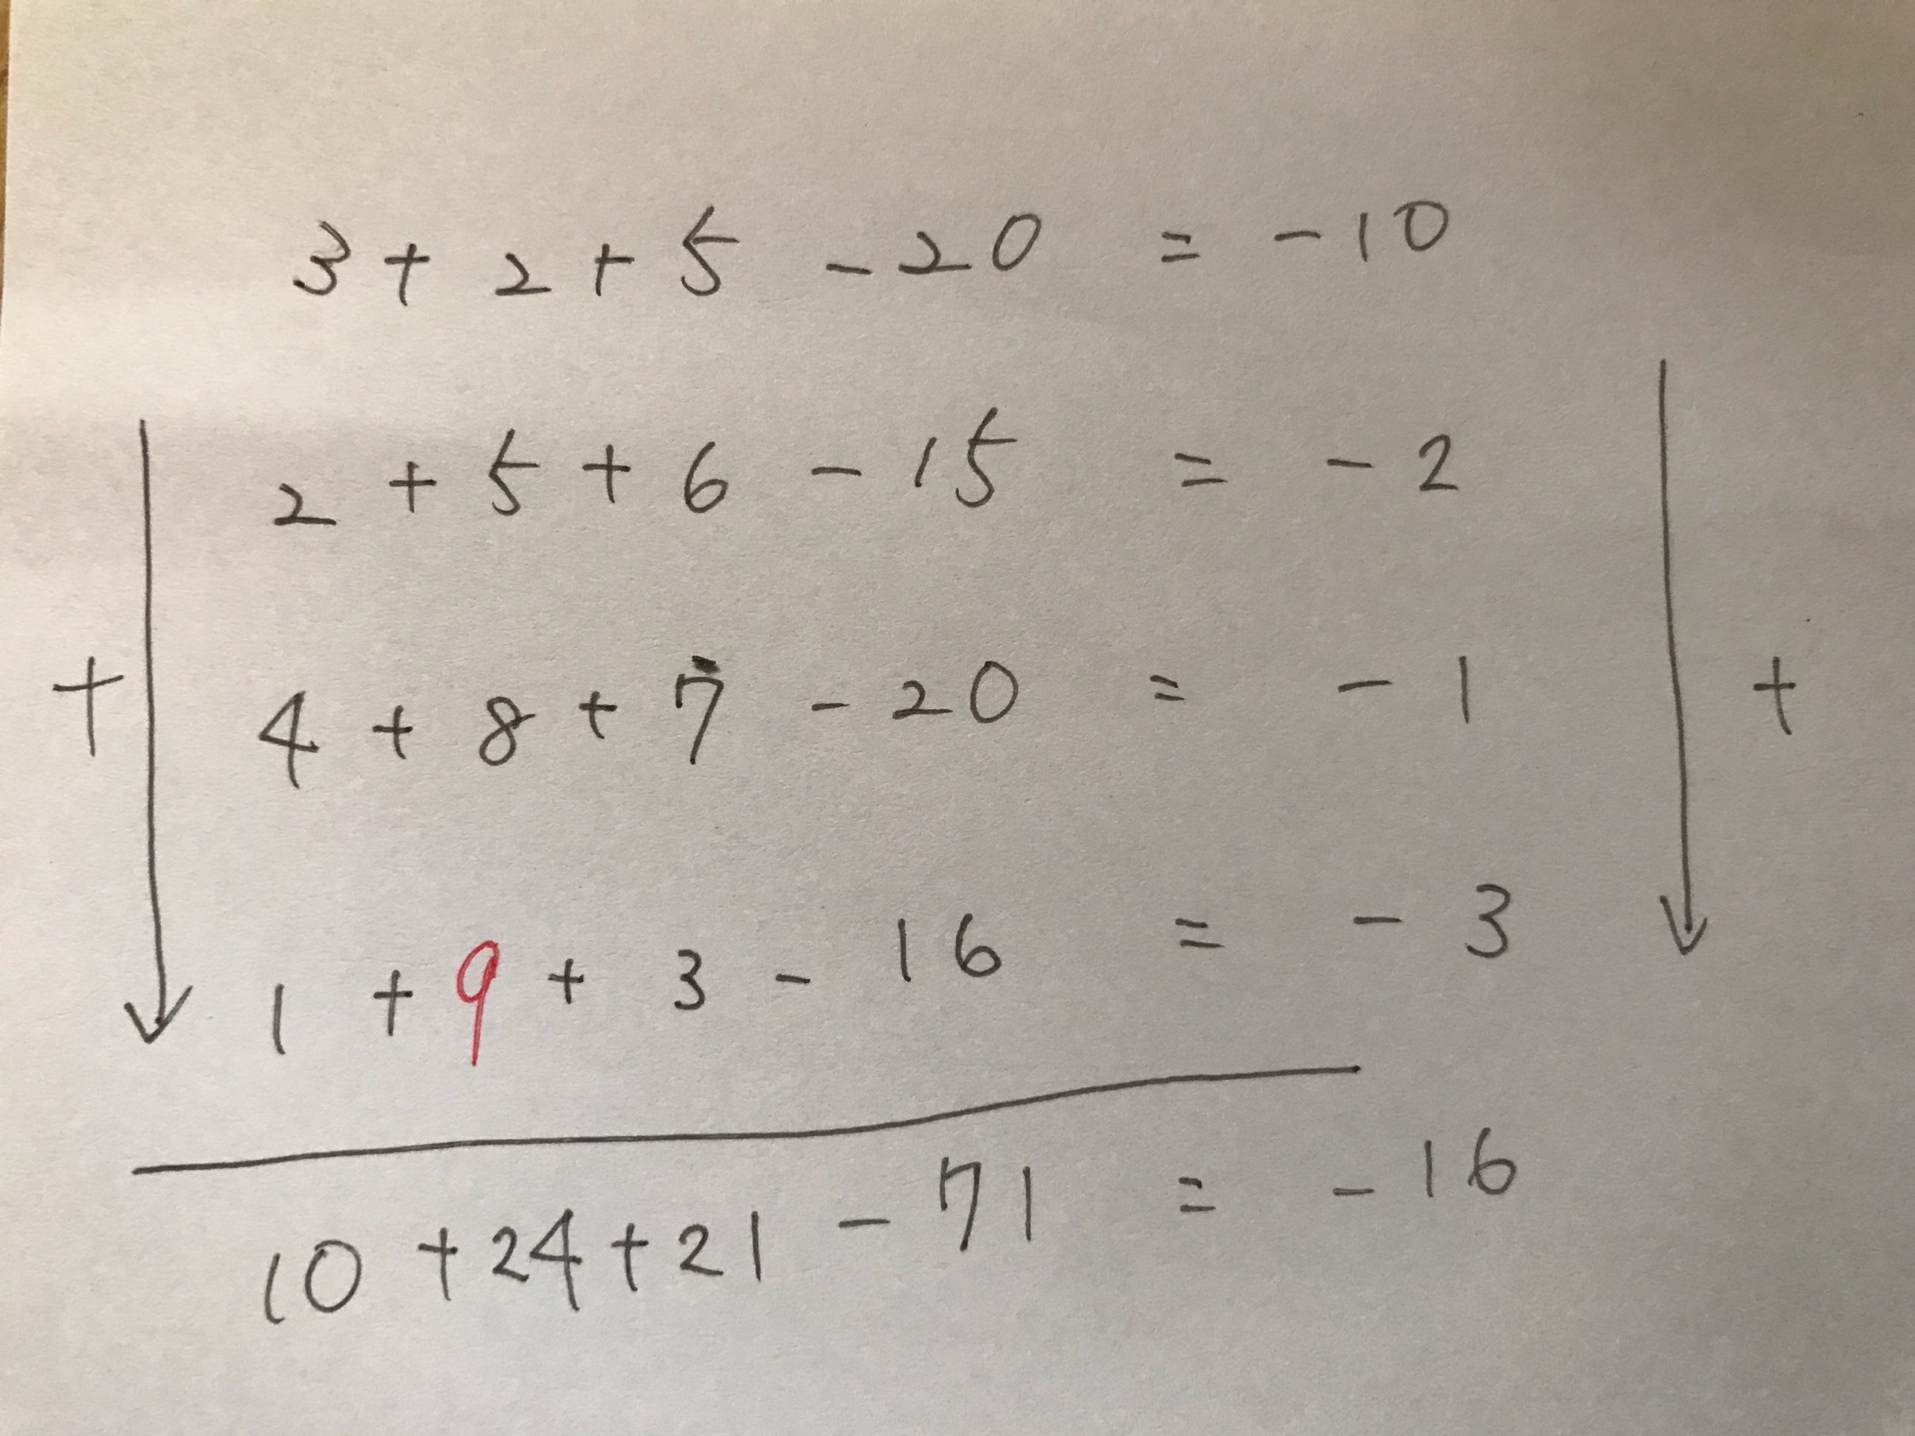 3 + 2 + 5 - 20 = - 10
2 + 5 + 6 - 15 = - 2
+ 4 + 8 + 7 - 20 = - 1 +
1 + 9 + 3 - 16 = - 3
10 + 24 + 21 - 71 = - 16